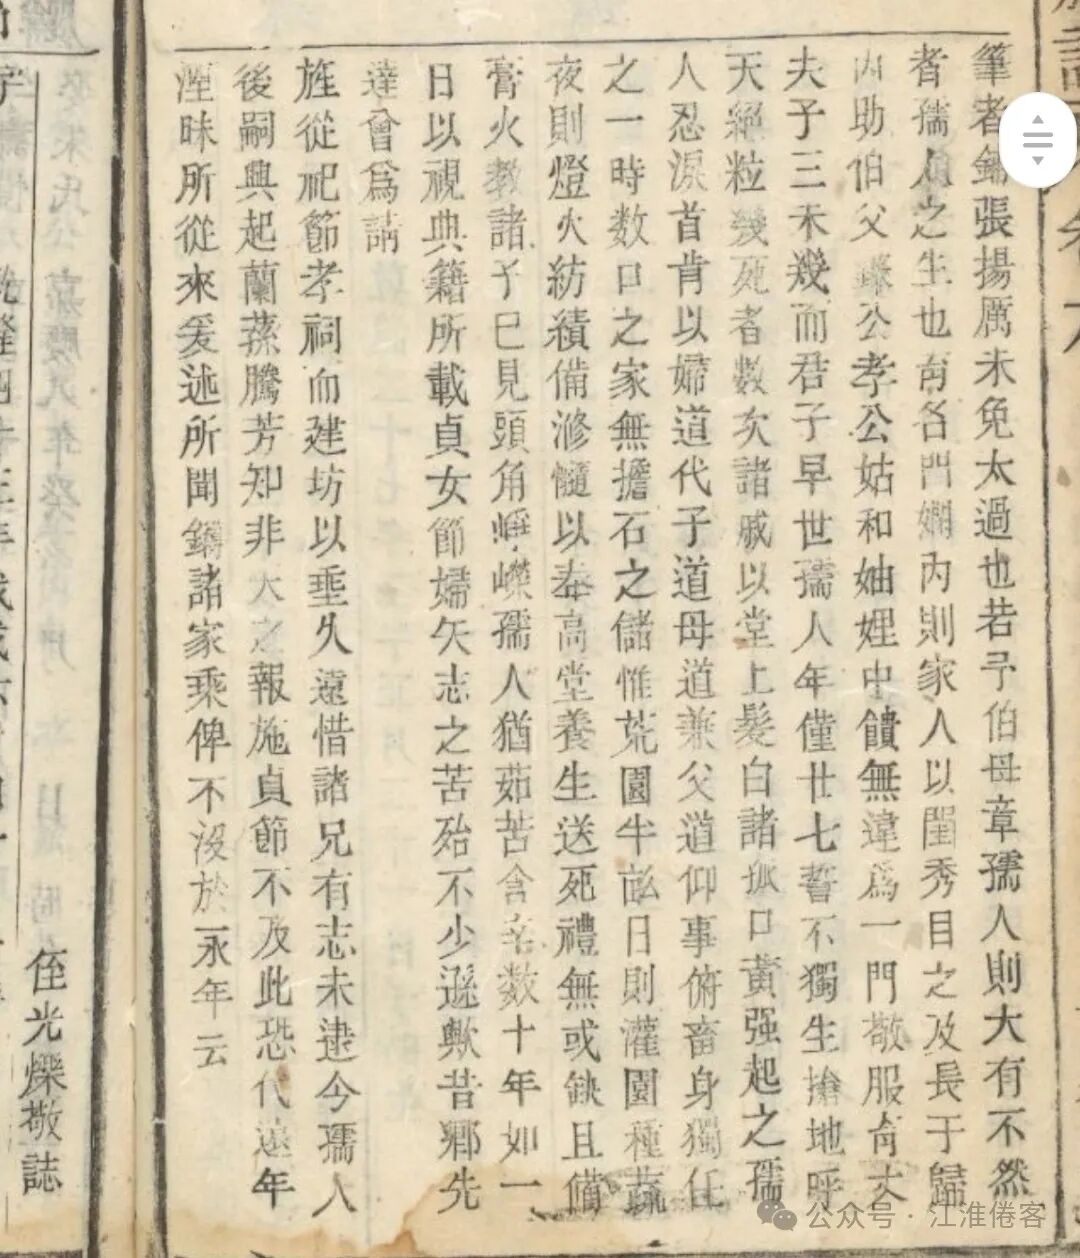 筆者鋪張揚厲未免太過也若予伯母章孺人則大有不然
者孺人之生也育名門嫻內則家人以閨秀目之及長于歸
內助伯父公孝公姑和妯娌中饋無違為一門敬服育丈
夫子三未幾而君子早世孺人年僅廿七誓不獨生搶地呼
天絕粒幾死者數次諸戚以堂上髮白諸孤口黃强起之孺
人忍淚首肯以婦道代子道母道兼父道仰事俯畜身獨任
之一時數口之家無擔石之儲惟荒園半畝日則灌園種蔬
夜則燈火紡績備滫髓以奉高堂養生送死禮無或缺且備
膏火教諸子已見頭角崢嶸孺人猶茹苦含辛數十年如一
日以視典籍所載貞女節婦矢志之苦殆不少遜歟昔鄉先
達曾為請
旌從祀節孝祠而建坊以垂久遠惜諸兄有志未逮今孺人
後嗣興起蘭蓀騰芳知非天之報施貞節不及此恐代遠年
湮昧所從來爰述所聞鐫諸家乘俾不沒於永年云
侄光爍敬誌
公众号·江淮倦客